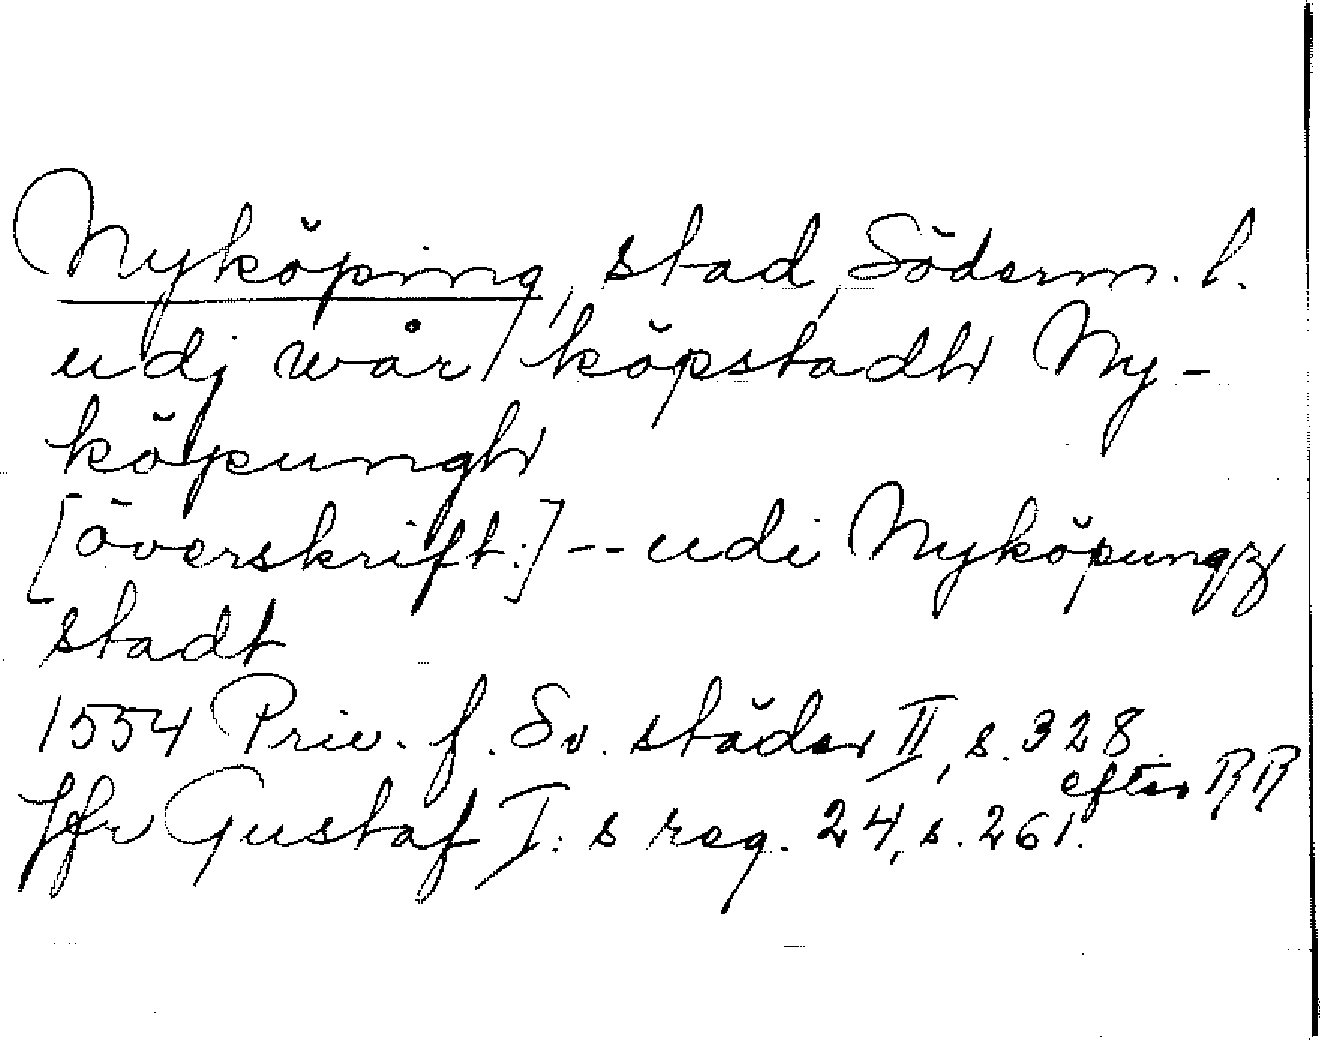 Nyköping, stad, Söderm. l.
udj wår köpstadh Ny-
köpungh
[överskrift:] -- udi Nyköpungz
stadt
1554 Priv. f. Sv. städer II, s. 328
efter RR
Jfr Gustaf I:s reg. 24, s. 261.